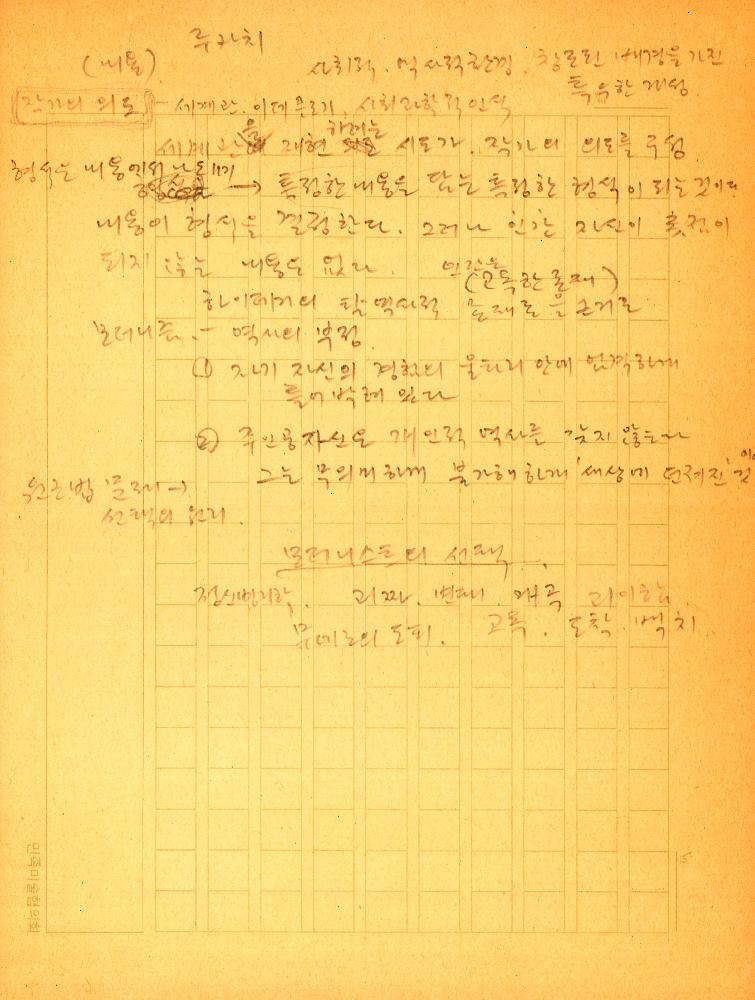 루카치
(내용)
사회적, 역사적 환경, 창조된 배경을 가진
특유한 개성
작가의 의도 - 세계관, 이데올로기, 사회과학적 인식
세계관을 재현하려는 시도가, 작가의 의도를 구성
형식은 내용에서 나오며
→ 특정한 내용을 담는 특정한 형식이 되는 것이다
내용이 형식을 결정한다. 그러나 인간 자신이 촛점이
되지 않는 내용은 없다.
인간은
(고독한 존재)
하이데거의 탈역사적 존재론을 근거로
모더니즘 - 역사의 부정
① 자기 자신의 경험의 울타리 안에 엄격하게
틀어 박혀 있다
② 주인공 자신은 개인적 역사를 갖지 않는다
그는 무의미하게 불가해하게 '세상에 던져진' 것
원근법 문제 →
선택의 원리.
모더니스트의 선택
정신병리학, 괴짜, 변태, 왜곡
의 도피. 고독, 도착, 백치
민족미술협의회